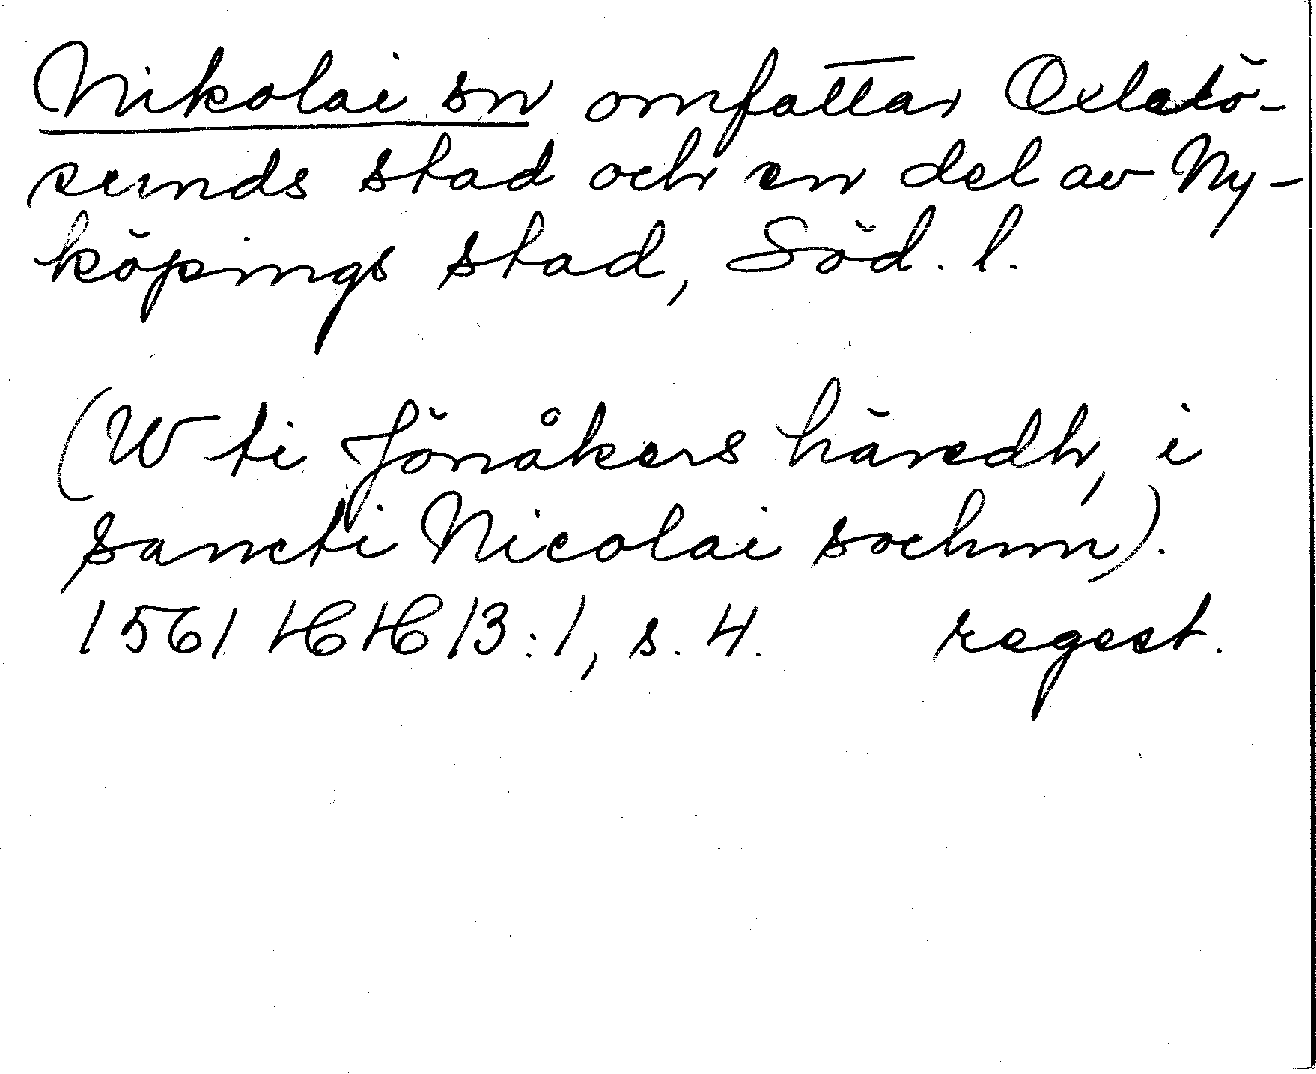 Nikolai sn omfattar Oxelö-
sunds stad och en del av Ny-
köpings stad, Söd. l.
(W ti Jönåkers häredh, i
sancti Nicolai sochnn).
1561 HH 13:1, s. 4. regest.